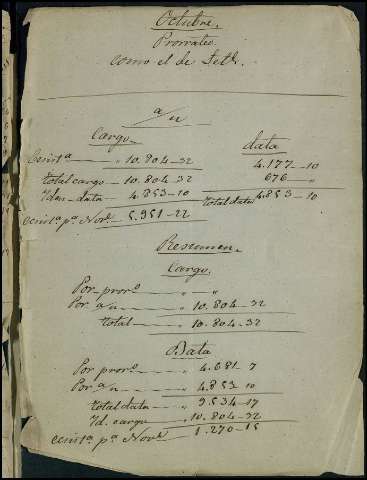 Octubre.
Prorrateo
como el de Sete.
a/u
Cargo
Data
Existª — " 10.804-32
4.177-10
676 "
Total cargo — 10.804-32
Total data 4.853-10
Idem data — 4.853-10
Existª pª Nove. — 5.951-22
Resumen.
Cargo.
Por prore. — " — "
Por a/u — " 10.804-32
Total — " 10.804-32
Data
Por prore. — " 4.681-7
Por a/u — " 4.853-10
Total data — " 9.534-17
Id. cargo — " 10.804-32
Existª pª Nove. — " 1.270-15